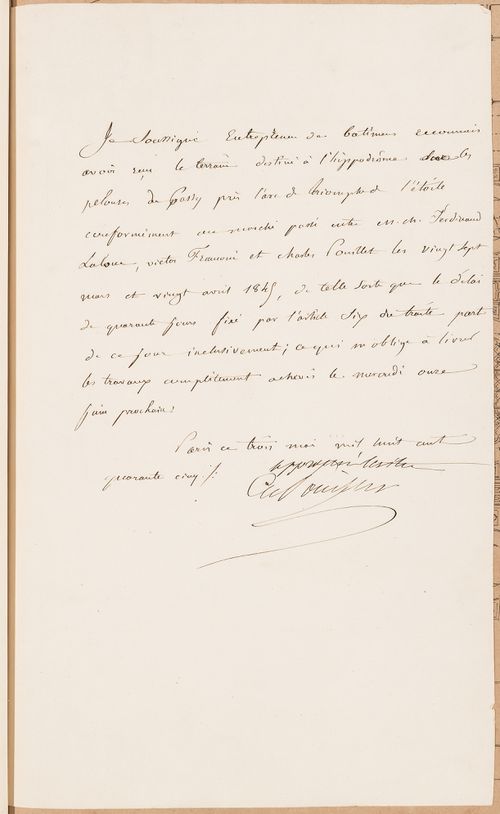 Je Soussigné Entrepreneur de batimens reconnais
avoir reçu le terrain destiné à l'hippodrôme les
pelouses de Passy près l'arc de triomphe de l'étoile
conformément au marché passé entre Ferdinand
Laloue, victor Franconi et charles Pouillet les vingt sept
mars et vingt avril 1845, de telle sorte que le délai
de quarante jours fixé par l'article Six du traité part
de ce jour inclusivement; ce qui m'oblige à livrer
les travaux complètement achevés le mercredi onze
juin prochain.
Paris ce trois mai mil huit cent
quarante cinq ./.
approuvé l'écriture
Ch Pouillet